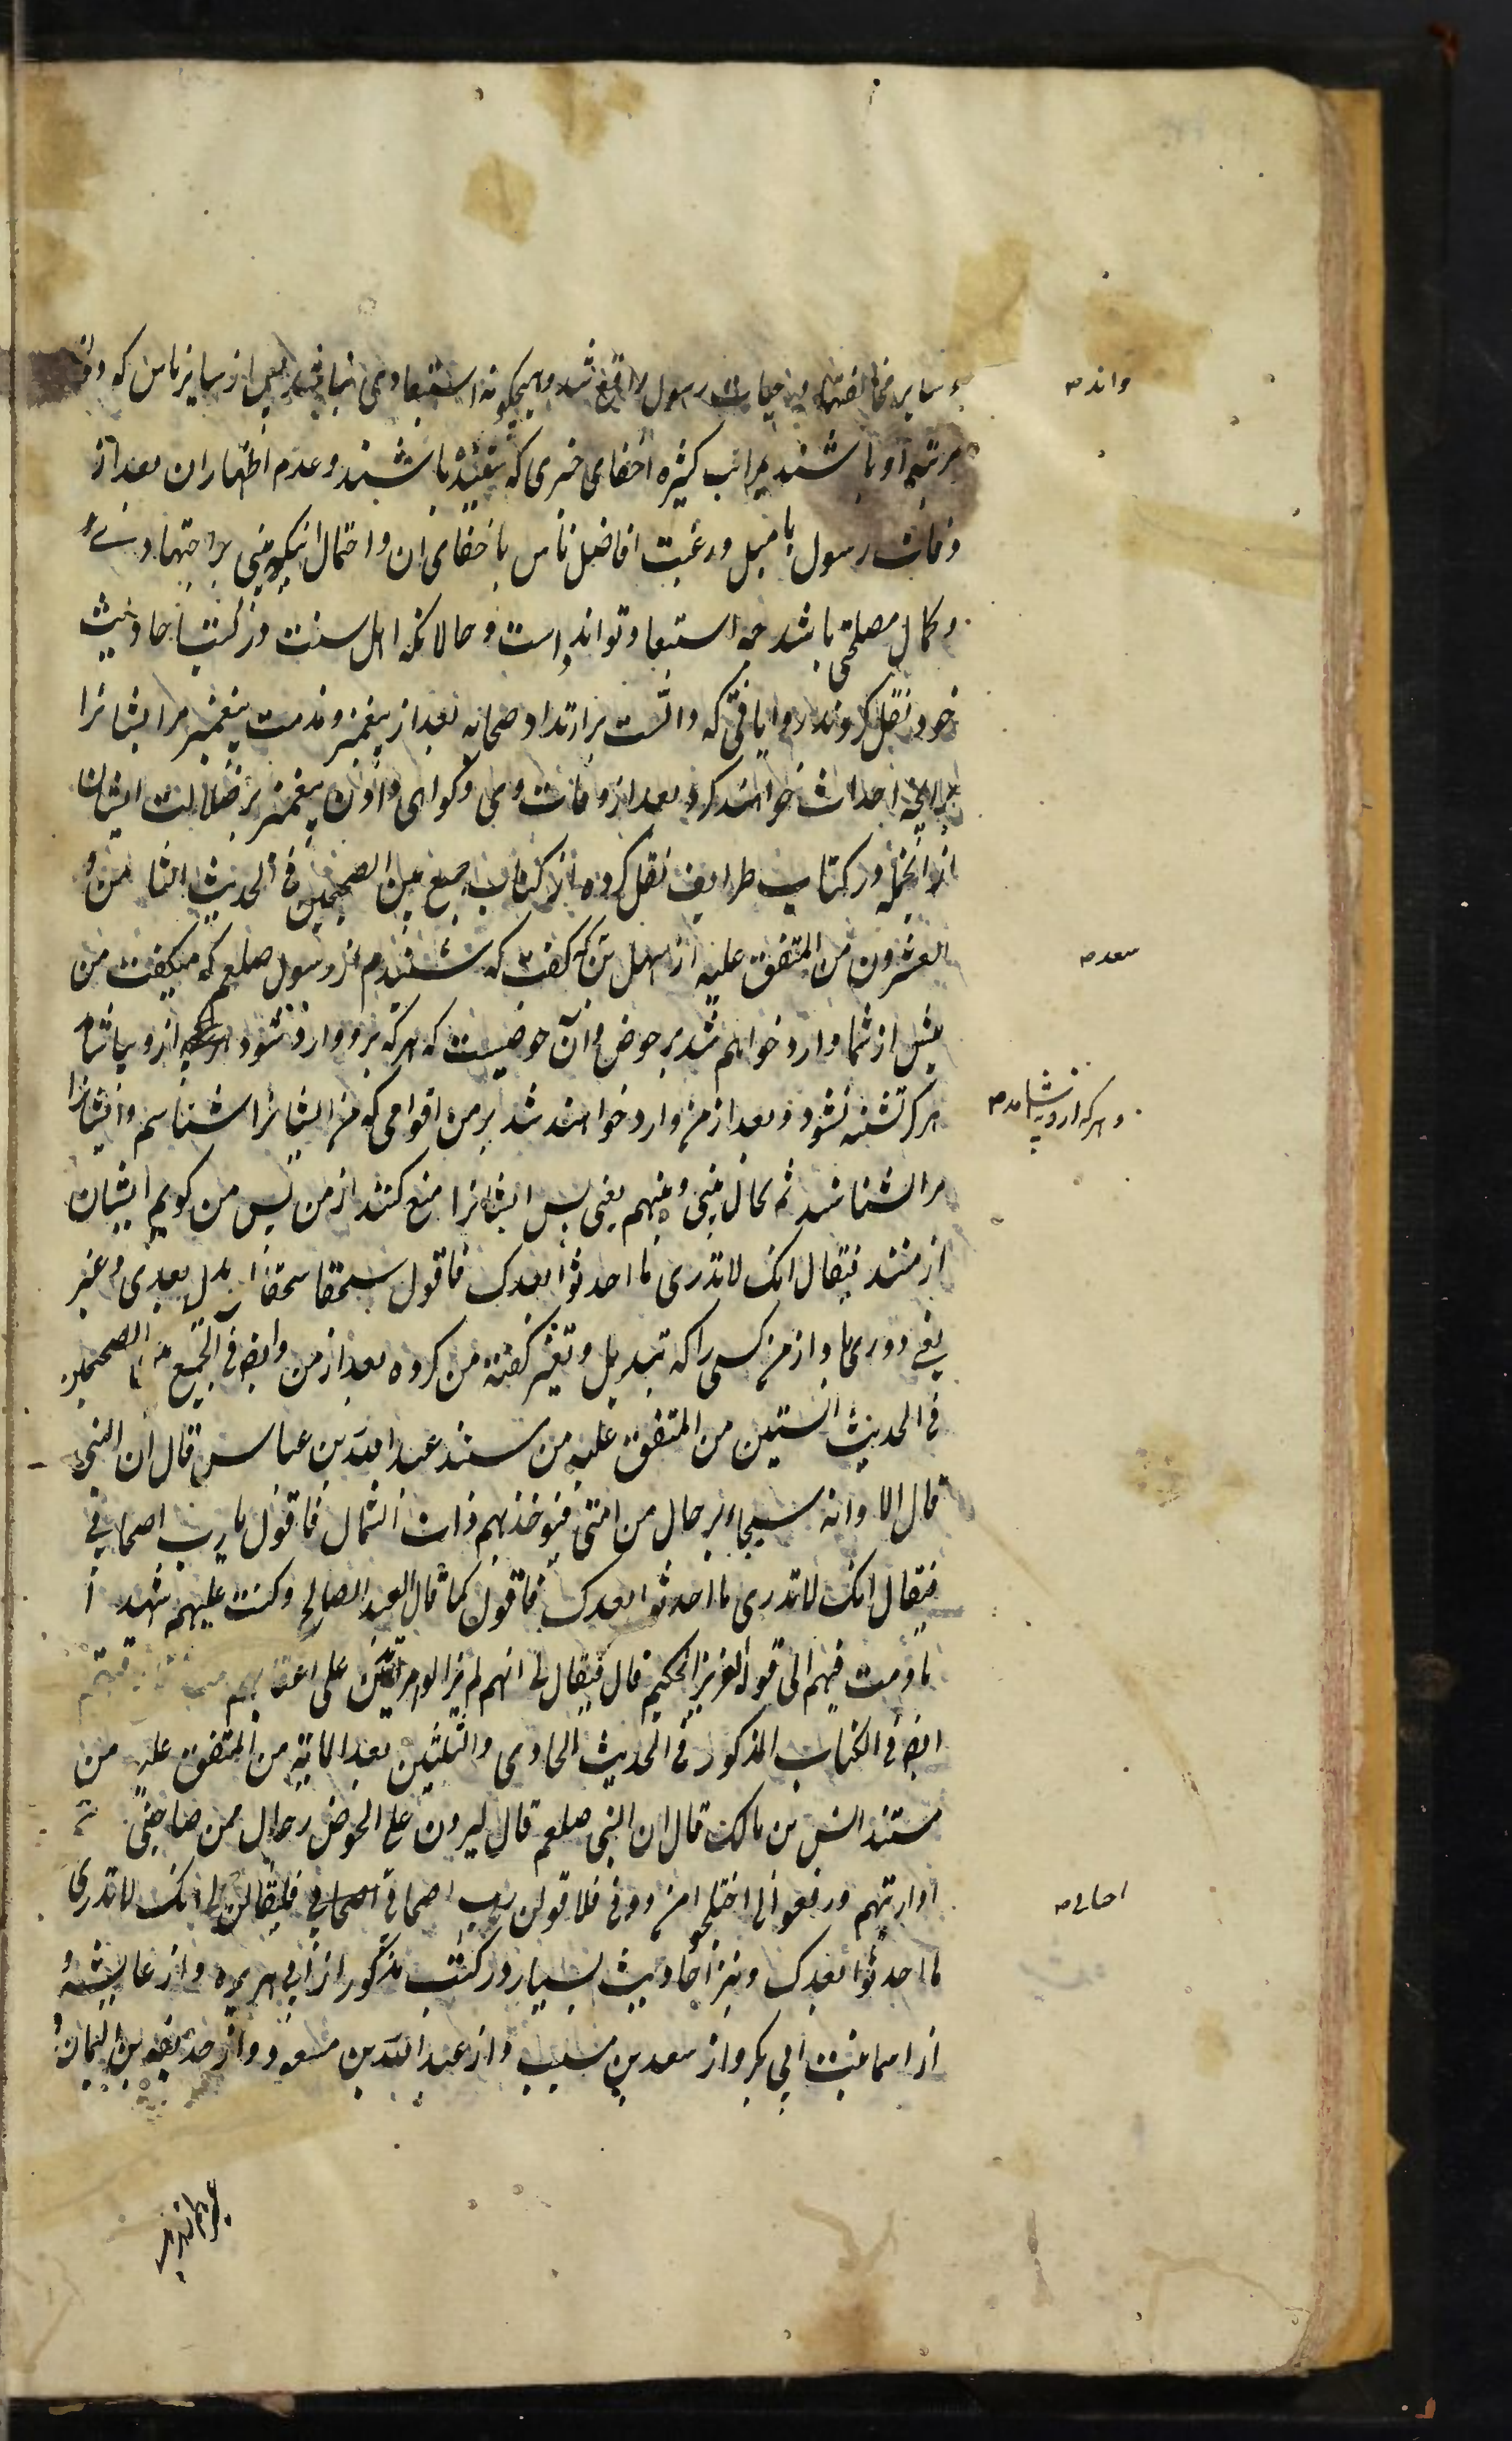 و سایر مخالفتها در حیات رسول واقع شد و هیچگونه استبعادی نباشد پس از سایر ناس که دون
مرتبه او باشند بمراتب کثیره اخفای خبری که شنیده باشند و عدم اظهار ان بعد از
وفات رسول با میل و رغبت افاضل ناس باخفای ان و احتمال اینکه مبنی بر اجتهاد
و کمال مصلحتی باشد چه استبعاد تواند است و حالانکه اهل سنت در کتب احادیث
خود نقل کردند روایاتی که دالست بر ارتداد صحابه بعد از پیغمبر و مذمت پیغمبر مر ایشانرا
بر انچه احداث خواهند کرد بعد از وفات وی و گواهی دادن پیغمبر بر ضلالت ایشان
از انجمله در کتاب طرایف نقل کرده از کتاب جمع بین الصحیحین فی الحدیث الثامن و
العشرون من المتفق علیه از سهل بن که گفت که شنیدم از رسول صلعم که میگفت من
پیش از شما وارد خواهم شد بر حوض و آن حوضیست که هر که برو وارد شود از و بیاشامد
هرگز تشنه نشود و بعد از من وارد خواهند شد بر من اقوامی که من ایشانرا شناسم و ایشان
مرا شناسند ثم یحال بینی و بینهم یعنی پس ایشانرا منع کنند از من پس من گویم ایشان
از منند فیقال انک لا تدری ما احدثوا بعدک فاقول سحقا سحقا لمن بدل بعدی و غیر
یعنی دوری باد از من کسی را که تبدیل و تغیر گفته من کرده بعد از من و ایضا فی الجمع بین الصحیحین
فی الحدیث الستین من المتفق علیه من مسند عبد الله بن عباس قال ان النبی
قال الا و انه سیجاء برجال من امتی فیؤخذ بهم ذات الشمال فاقول یا رب اصحابی
فیقال انک لا تدری ما احدثوا بعدک فاقول کما قال العبد الصالح و کنت علیهم شهیدا
ما دمت فیهم الی قوله العزیز الحکیم قال فیقال لی انهم لم یزالوا مرتدین علی اعقابهم منذ فارقتهم
ایضا فی الکتاب المذکور فی الحدیث الحادی و الثلثین بعد المایة من المتفق علیه من
مسند انس بن مالک قال ان النبی صلعم قال لیردن علی الحوض رجال ممن صاحبنی
اذا رایتهم و رفعوا الی اختلجوا من دونی فلاقولن رب اصحابی اصحابی فلیقالن لی انک لا تدری
ما احدثوا بعدک و نیز احادیث بسیار در کتب مذکور از ابی هریره و از عایشه و
از اسما بنت ابی بکر و از سعد بن مسیب و از عبد الله بن مسعود و از حذیفه بن الیمان
واند صه
سعد صه
و هر که ازو بیاشامد صه
اصحابی صه